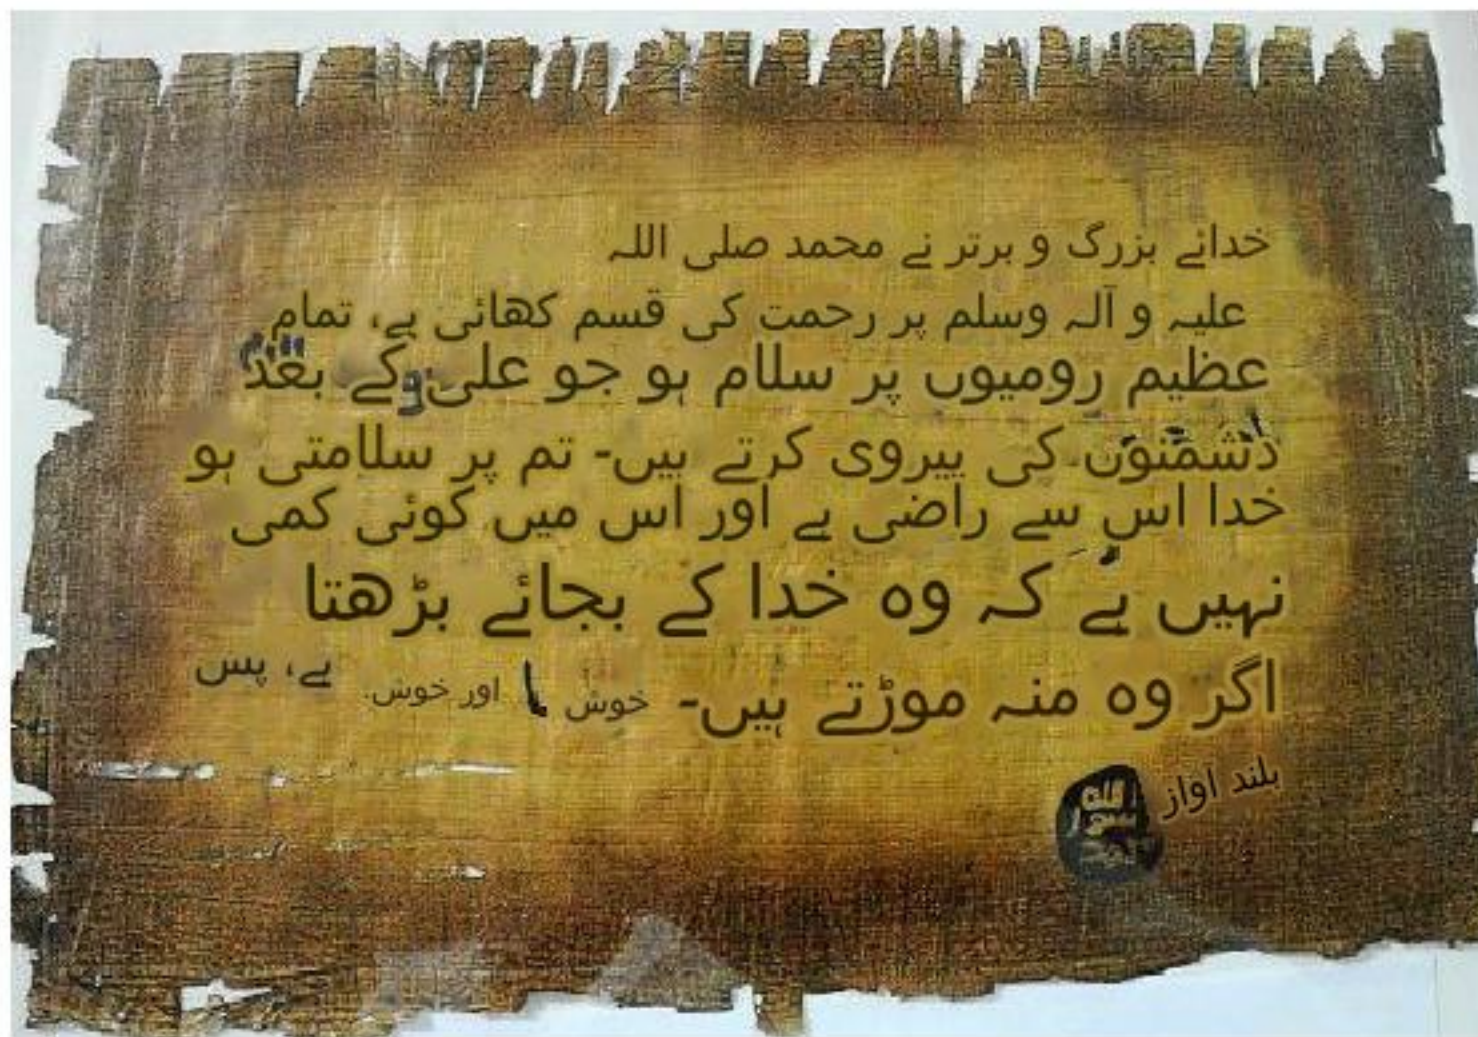 خدائے بزرگ و برتر نے محمد صلی اللہ
علیہ و آلہ وسلم پر رحمت کی قسم کھائی ہے، تمام
عظیم رومیوں پر سلام ہو جو علی کے بعد
دشمنوں کی پیروی کرتے ہیں۔ تم پر سلامتی ہو
خدا اس سے راضی ہے اور اس میں کوئی کمی
نہیں ہے کہ وہ خدا کے بجائے بڑھتا
اگر وہ منہ موڑتے ہیں۔ خوش اور خوش. ہے، پس
بلند اواز